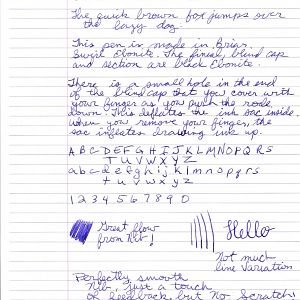 The quick brown fox jumps over
the lazy dog.
This pen is made in Briar
Swirl Ebonite. The finial, blind cap
and section are black Ebonite.
There is a small hole in the end
of the blind cap that you cover with
your finger as you push the rode
down. This deflates the ink sac inside.
When you remove your finger, the
sac inflates drawing ink up.
A B C D E F G H I J K L M N O P Q R S
T U V W X Y Z
a b c d e f g h i j k l m n o p q r s
t u v w x y z
1 2 3 4 5 6 7 8 9 0
Great flow
from Nib!
Hello
Not much
line Variation
Perfectly smooth
Nib, just a touch
of feedback but No Scratch!